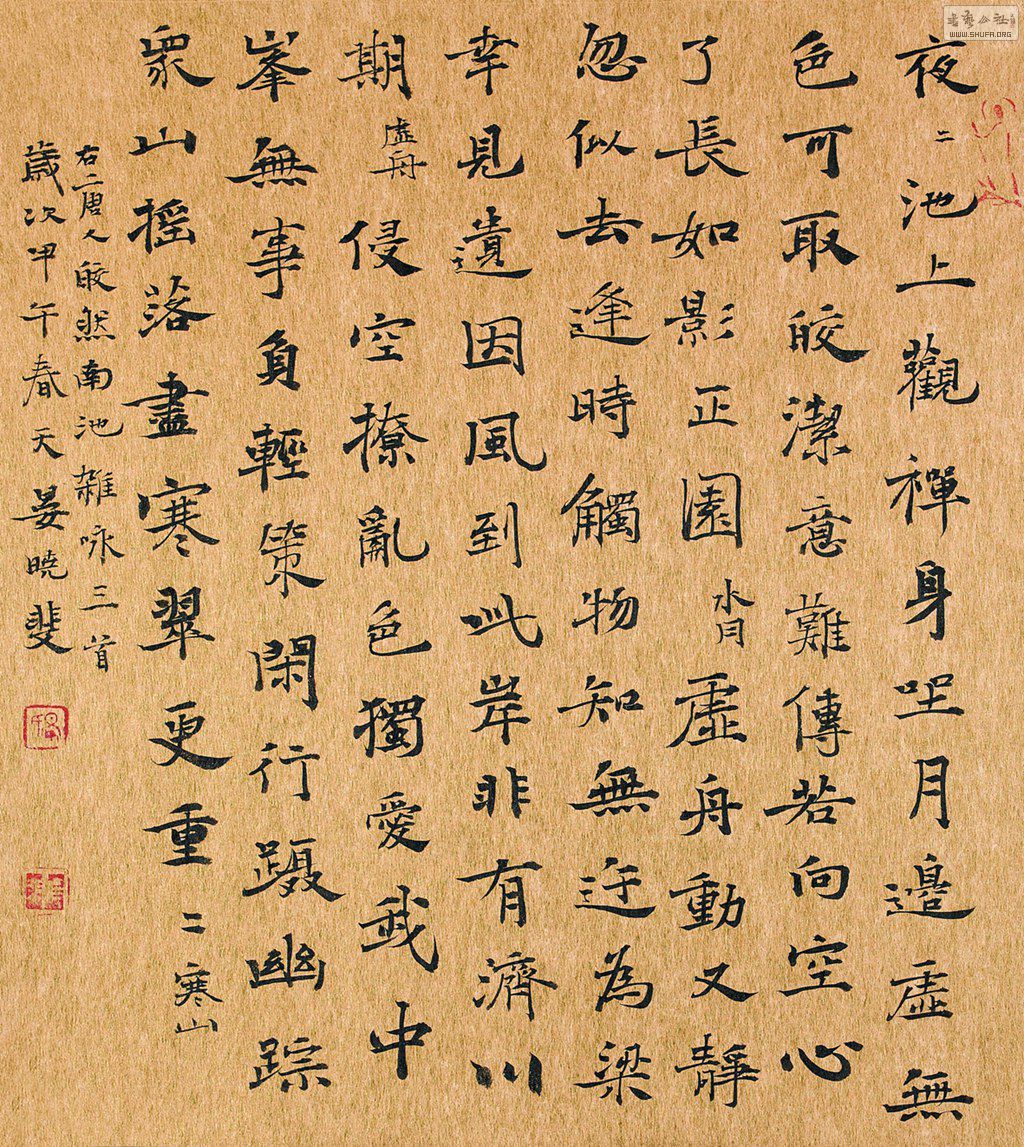 夜二池上觀禪身坐月邊虛無
色可取皎潔意難傳若向空心
了長如影正園水月虛舟動又靜
忽似去逢時觸物知無迕為梁
幸見遺因風到此岸非有濟川
期虛舟侵空撩亂色獨愛我中
峯無事負輕策閑行躡幽踪
衆山摇落盡寒翠更重二寒山
右二唐人皎然南池雜咏三首
歲次甲午春天晏曉斐
WWW.SHUFA.ORG